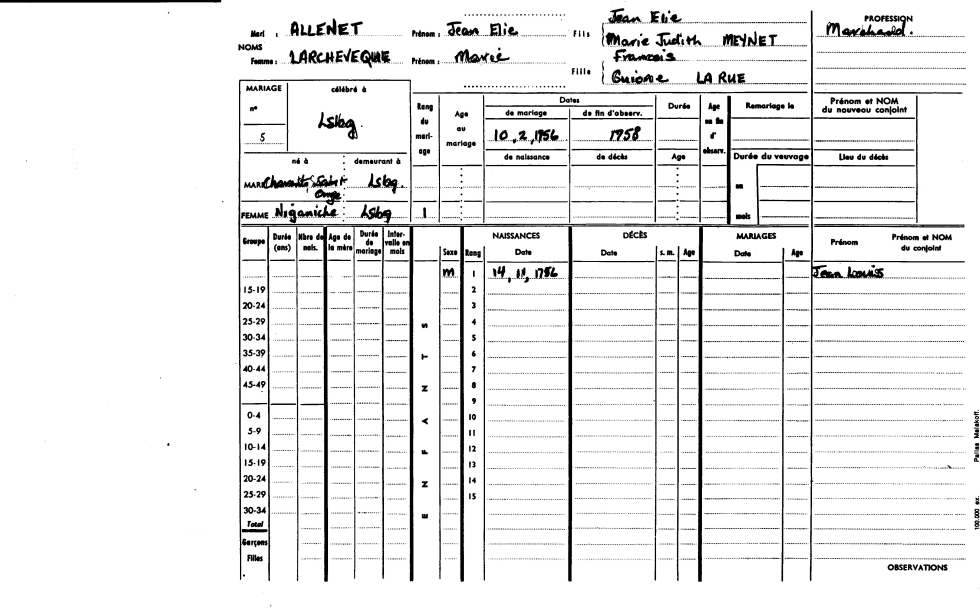 Mari : ALLENET Prénom : Jean Elie Fils Jean Elie
Marie Judith MEYNET
PROFESSION
Marchand.
NOMS
Femme : LARCHEVEQUE Prénom : Marie Fille Francois
Guione LA RUE
MARIAGE célébré à
n° 5 Lsbg.
Rang du mari-age Age au mariage Dates Durée Age en fin d'observ. Remariage le Prénom et NOM du nouveau conjoint
de mariage de fin d'observ.
10.2.1756 1758
de naissance de décès Age Durée du veuvage Lieu du décès
né à demeurant à
MARI Saint Onge Lsbg. an
FEMME Niganiche Lsbg 1 mois
Groupe Durée (ans) Nbre de nais. Age de la mère Durée de mariage Inter-valle en mois Sexe Rang NAISSANCES Date DÉCÈS Date s. m. Age MARIAGES Date Age Prénom Prénom et NOM du conjoint
M 1 14, 11, 1756 Jean Louis
15-19 2
20-24 3
25-29 4
30-34 5
35-39 6
40-44 7
45-49 8
9
0-4 10
5-9 11
10-14 12
15-19 13
20-24 14
25-29 15
30-34
Total
Garçons
Filles
ENFANTS
OBSERVATIONS
100.000 ex. Paillas Malakoff.